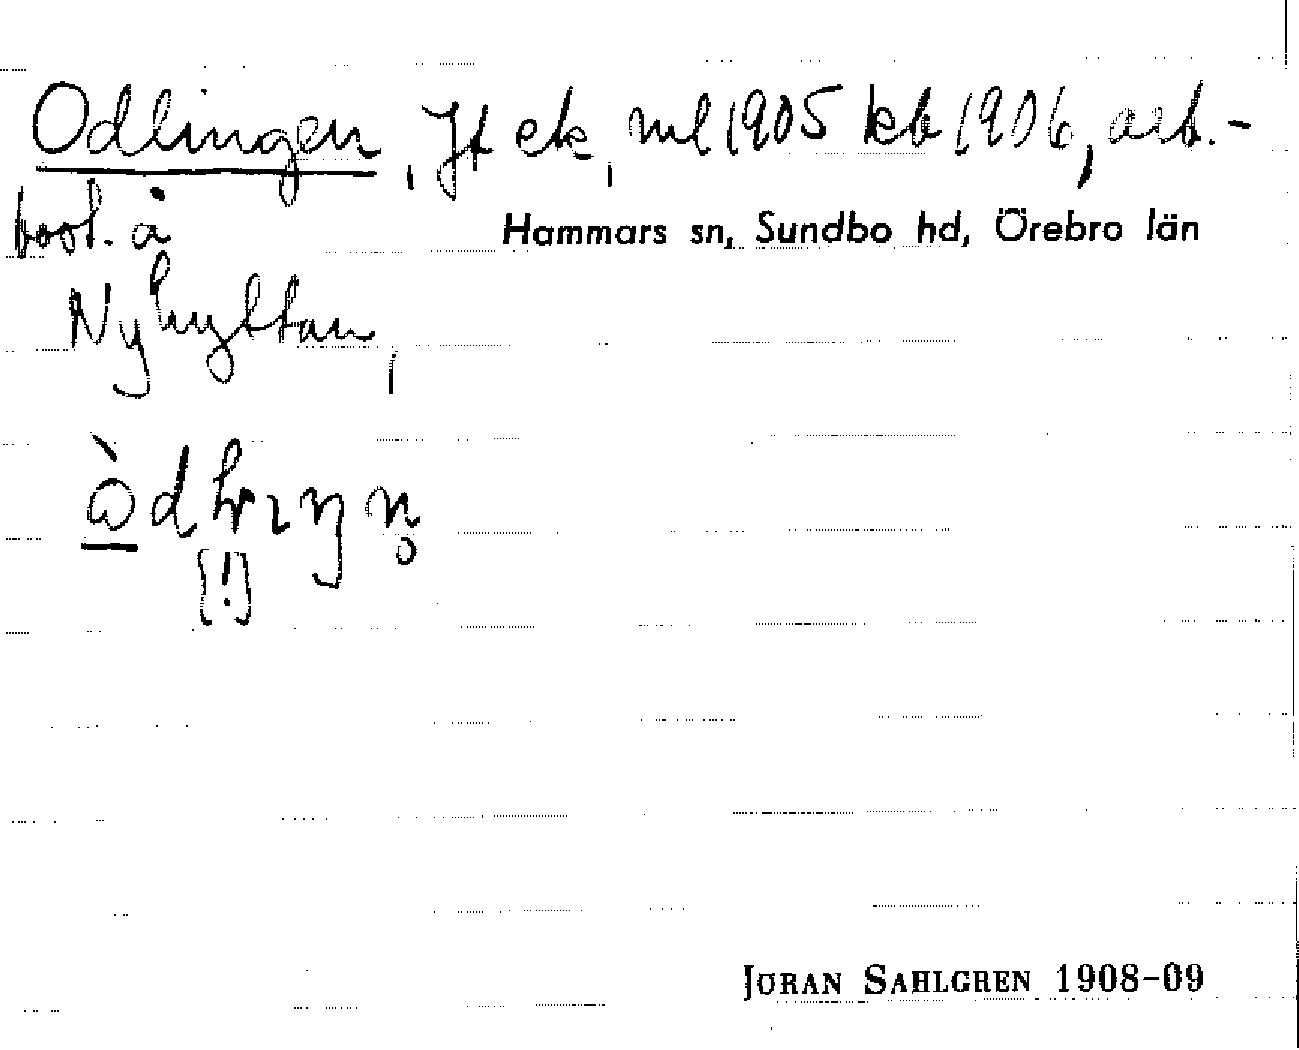 Odlingen, Jt ek, ml 1905 kb 1906, arb.-
bost. å
Hammars sn, Sundbo hd, Örebro län
Nyhyttan,
[!]
JÖRAN SAHLGREN 1908-09